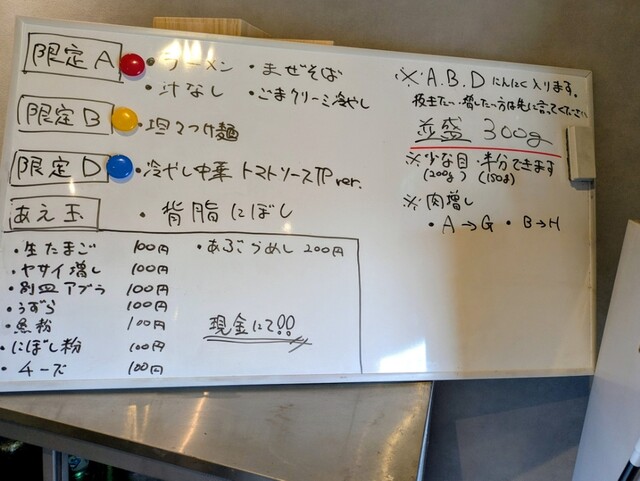 限定A ・ラーメン ・まぜそば
・汁なし ・ごまクリーミー冷やし
限定B ・坦々つけ麺
限定D ・冷やし中華 トマトソースTP ver.
あえ玉 ・背脂にぼし
・生たまご 100円
・ヤサイ増し 100円
・別皿アブラ 100円
・うずら 100円
・魚粉 100円
・にぼし粉 100円
・チーズ 100円
・あぶらめし 200円
現金にて!!
※A.B.D にんにく入ります。
抜きたい・増したい方は先に言てください
並盛 300g
※少な目・半分できます
(200g) (150g)
※肉増し
・A→G ・B→H